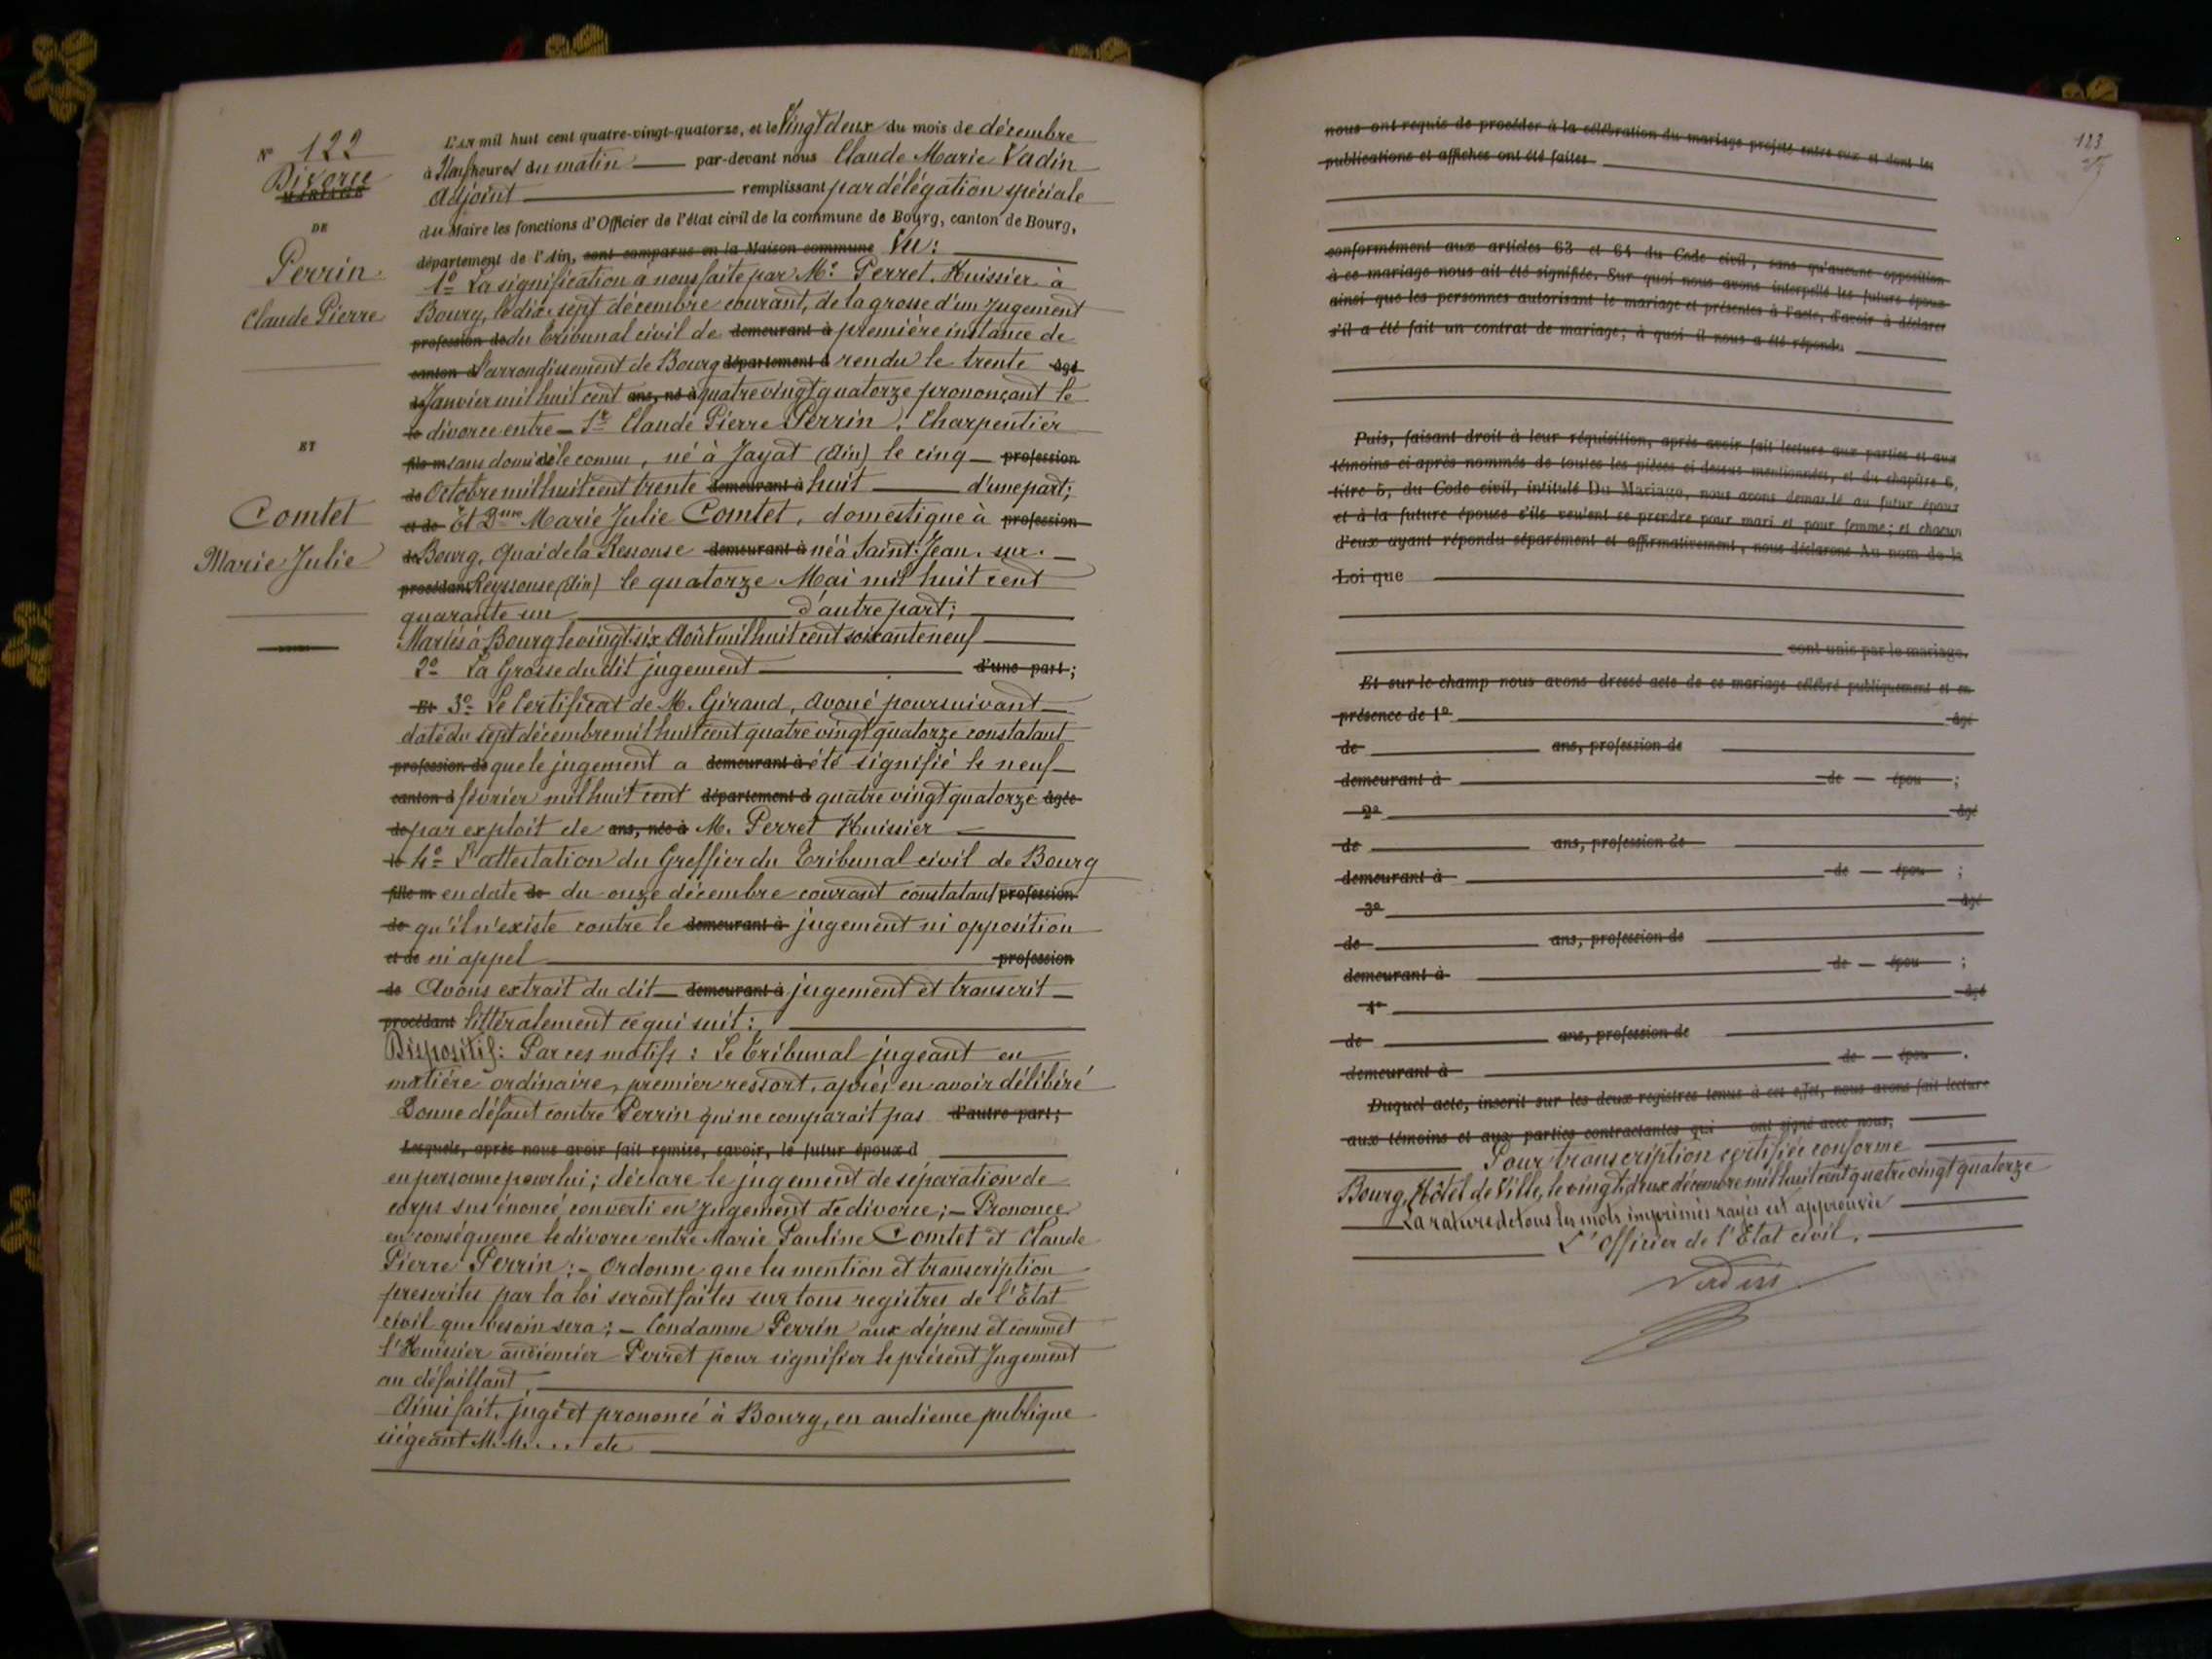 N° 122
Divorce
MARIAGE
DE
Perrin
Claude Pierre
ET
Comtet
Marie Julie
L'an mil huit cent quatre-vingt-quatorze, et le Vingt deux du mois de décembre
à Neuf heures du matin par-devant nous Claude Marie Vadin
Adjoint remplissant par délégation spéciale
du Maire les fonctions d'Officier de l'état civil de la commune de Bourg, canton de Bourg,
département de l'Ain, sont comparus en la Maison commune Vu :
1° La signification à nous faite par Me Perret, Huissier à
Bourg, le dix-sept décembre courant, de la grosse d'un Jugement
profession de du Tribunal civil de demeurant à première instance de
canton d l'arrondissement de Bourg département d rendu le trente âgé
de Janvier mil huit cent ans, né à quatre vingt quatorze prononçant le
le divorce entre Sr Claude Pierre Perrin, Charpentier
fils m sans domicile connu, né à Jayat (Ain) le cinq profession
de Octobre mil huit cent trente demeurant à huit d'une part ;
et de Et Dme Marie Julie Comtet, domestique à profession
de Bourg, Quai de la Ressouse demeurant à né à Saint-Jean-sur-
procédant Reyssouse (Ain) le quatorze Mai mil huit cent
quarante un d'autre part ;
Mariés à Bourg le vingt-six Août mil huit cent soixante neuf
2° La Grosse du dit jugement d'une part ;
Et 3° Le Certificat de M. Girand, avoué poursuivant
daté du sept décembre mil huit cent quatre vingt quatorze constatant
profession de que le jugement a demeurant à été signifié le neuf
canton d février mil huit cent département d quatre vingt quatorze âgée
de par exploit de ans, née à M. Perret Huissier
le 4° L'attestation du Greffier du Tribunal civil de Bourg
fille m en date de du onze décembre courant constatant profession
de qu'il n'existe contre le demeurant à jugement ni opposition
et de ni appel profession
de Avons extrait du dit demeurant à jugement et transcrit
procédant littéralement ce qui suit :
Dispositif : Par ces motifs : Le Tribunal jugeant en
matière ordinaire, premier ressort, après en avoir délibéré
Donne défaut contre Perrin qui ne comparait pas d'autre part ;
Lesquels, après nous avoir fait remise, savoir, le futur époux d
en personne pour lui ; déclare le jugement de séparation de
corps sus énoncé converti en Jugement de divorce ; – Prononce
en conséquence le divorce entre Marie Pauline Comtet et Claude
Pierre Perrin ; – Ordonne que les mention et transcription
prescrites par la loi seront faites sur tous registres de l'Etat
civil que besoin sera ; – Condamne Perrin aux dépens et commet
l'Huissier audiencier Perret pour signifier le présent Jugement
au défaillant
Ainsi fait, jugé et prononcé à Bourg, en audience publique
siégeant M.M. . . . etc
123
nous ont requis de procéder à la célébration du mariage projeté entre eux et dont les
publications et affiches ont été faites
conformément aux articles 63 et 64 du Code civil, sans qu'aucune opposition
à ce mariage nous ait été signifiée. Sur quoi nous avons interpellé les futurs époux
ainsi que les personnes autorisant le mariage et présentes à l'acte, d'avoir à déclarer
s'il a été fait un contrat de mariage ; à quoi il nous a été répondu
Puis, faisant droit à leur réquisition, après avoir fait lecture aux parties et aux
témoins ci-après nommés de toutes les pièces ci-dessus mentionnées, et du chapitre 6,
titre 5, du Code civil, intitulé Du Mariage, nous avons demandé au futur époux
et à la future épouse s'ils veulent se prendre pour mari et pour femme ; et chacun
d'eux ayant répondu séparément et affirmativement, nous déclarons Au nom de la
Loi que
sont unis par le mariage.
Et sur-le-champ nous avons dressé acte de ce mariage célébré publiquement et en
présence de 1° âgé
de ans, profession de
demeurant à de — épou ;
2° âgé
de ans, profession de
demeurant à de — épou ;
3° âgé
de ans, profession de
demeurant à de — épou ;
4° âgé
de ans, profession de
demeurant à de — épou .
Duquel acte, inscrit sur les deux registres tenus à cet effet, nous avons fait lecture
aux témoins et aux parties contractantes qui ont signé avec nous,
Pour transcription certifiée conforme
Bourg, Hôtel de Ville, le vingt deux décembre mil huit cent quatre vingt quatorze
La rature de tous les mots imprimés rayés est approuvée
L'Officier de l'Etat civil,
Vadin